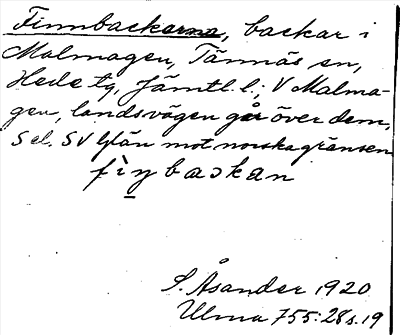 Finnbackarna, backar i
Malmagen, Tännäs sn,
Hede tg, Jämtl. l.; V Malma-
gen, landsvägen går över dem,
S el. SV från mot norska gränsen
fìŋbaskan
S. Åsander 1920
Ulma 755:28 s. 19